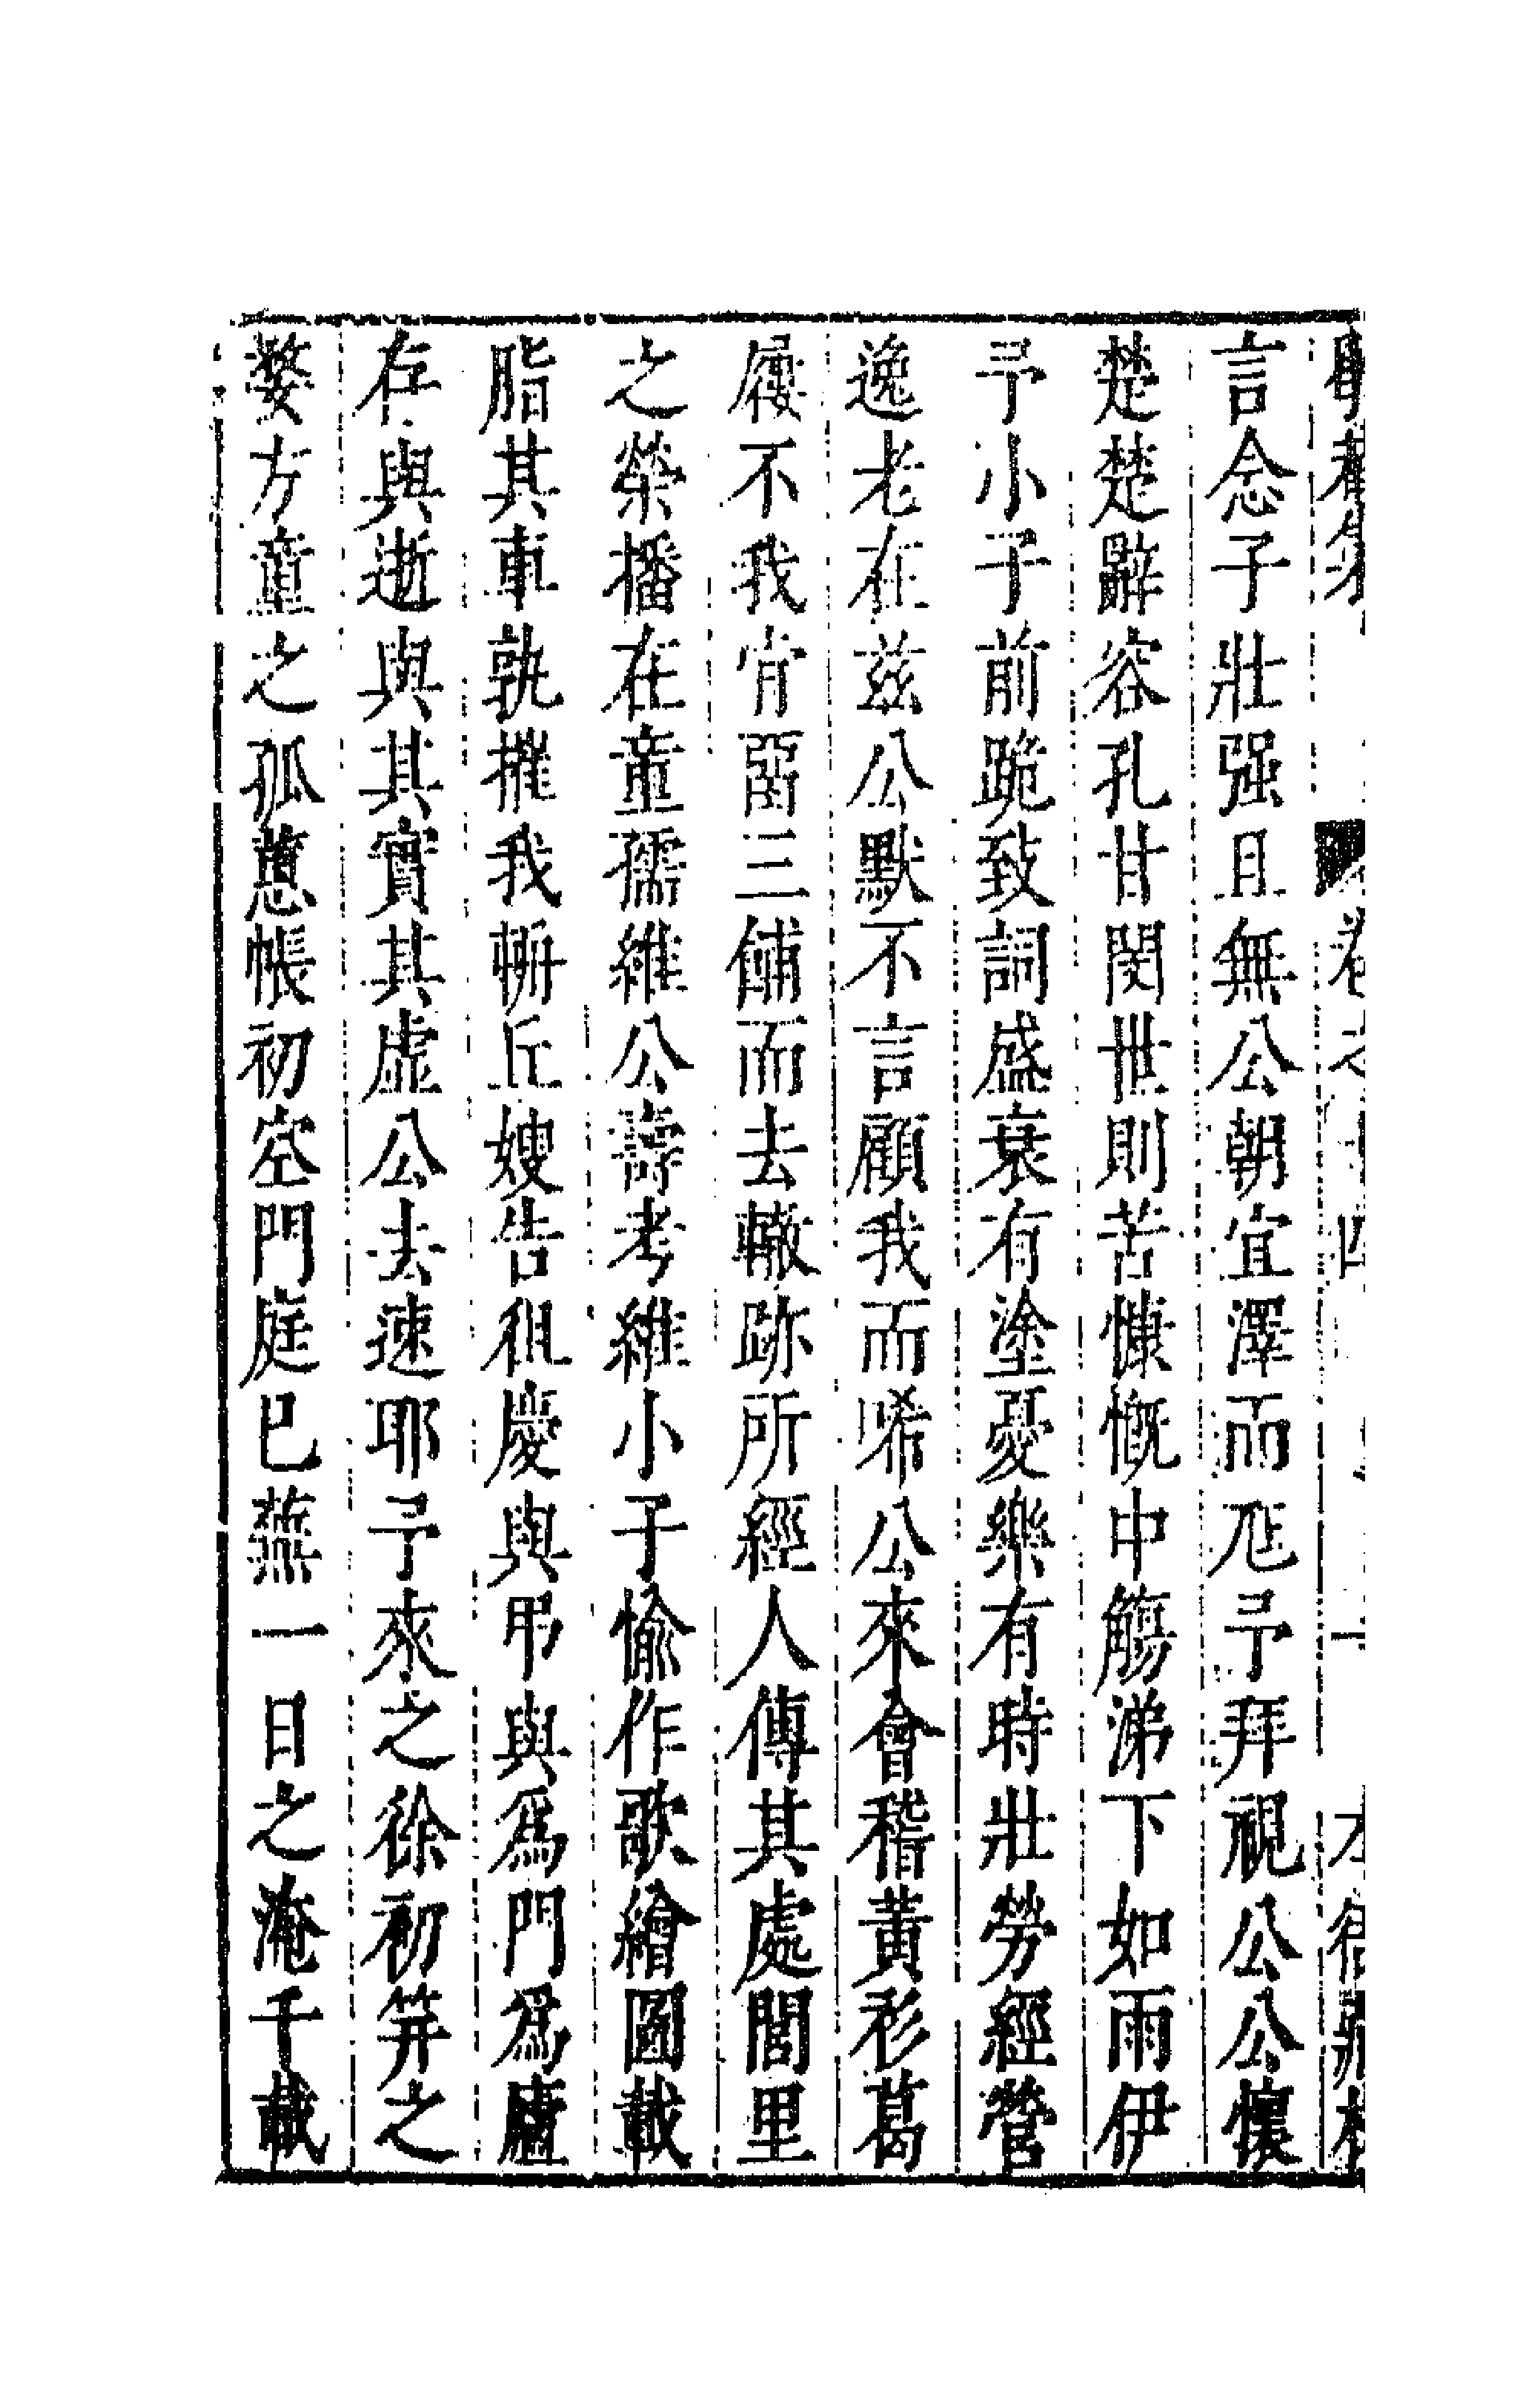 言念子壯强且無公朝宜澤而尫予拜視公公懷
楚楚辭容孔甘閔世則苦慷慨中觴涕下如雨伊
予小子前跪致詞盛衰有塗憂樂有時壯勞經營
逸老在兹公默不言顧我而唏公來會稽黃衫葛
屨不我肯畱三餔而去轍跡所經人傳其處閭里
之榮播在童孺維公壽考維小子愉作歌繪圖載
脂其車孰摧我輧丘嫂告徂慶與弔與爲門爲廬
存與逝與其實其虛公去速耶予來之徐初笄之
婺方童之孤蕙帳初空門庭巳蕪一日之淹千載